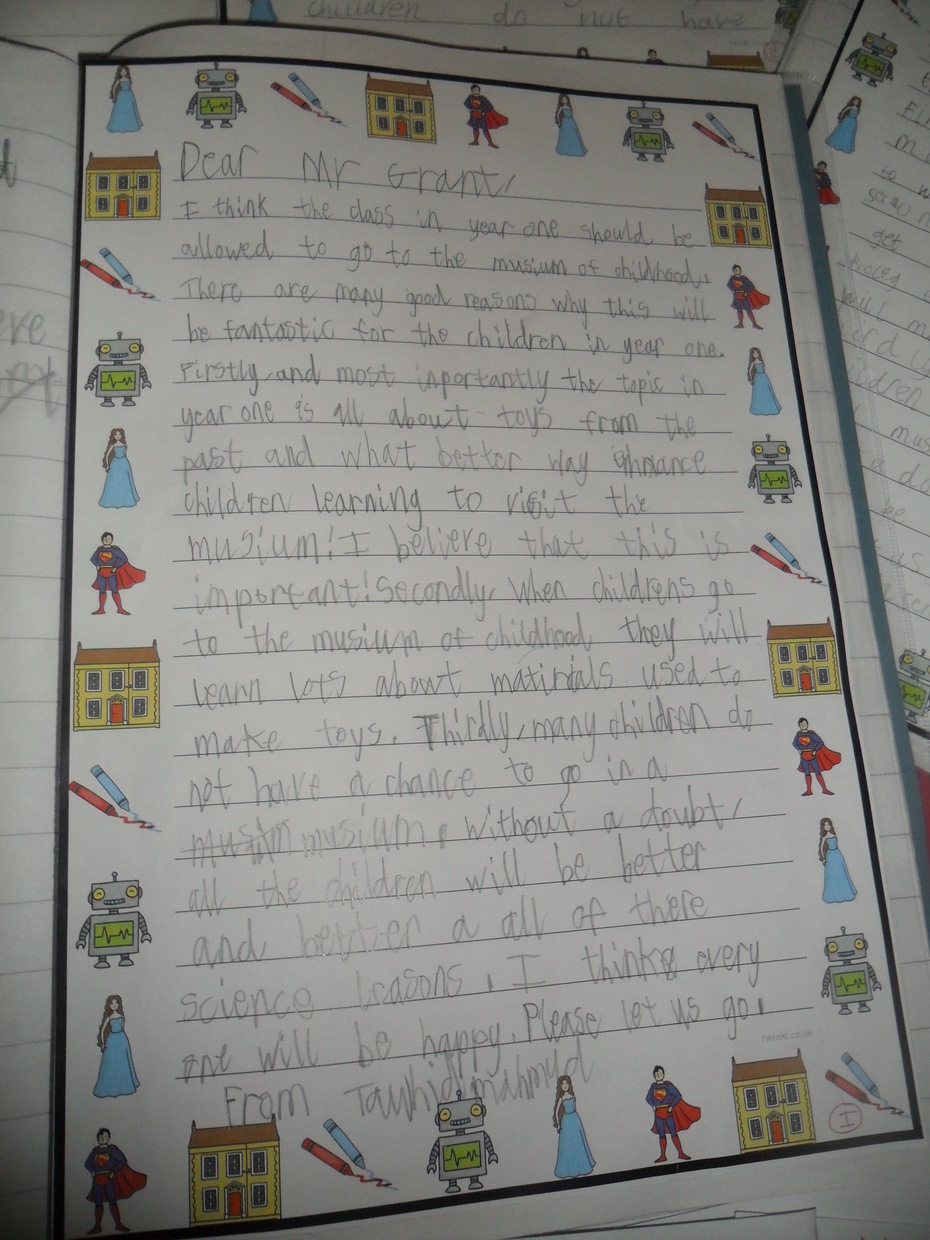 children do not have
Dear Mr Grant,
I think the class in year one should be
allowed to go to the musium of childhood.
There are many good reasons why this will
be fantastic for the children in year one.
Firstly, and most inportantly the topic in
year one is all about toys from the
past and what better way
children learning to visit the
musium! I believe that this is
important! Secondly, when childrens go
to the musium of childhood they will
learn lots about used to
make toys. Thirdly, many children do
not have a chance to go in a
musium. Without a doubt,
all the children will be better
and better a all of there
science leasons. I think every
one will be happy. Please let us go.
From Tawhid mahmud
twinkl.co.uk
I
get